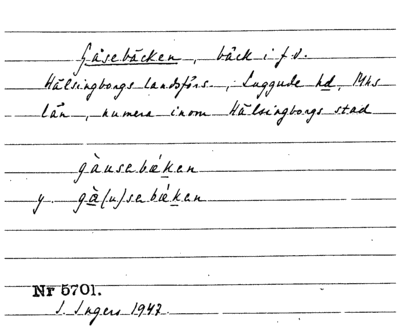 Gåsebäcken, bäck i f.d.
Hälsingborgs landsförs., Luggude hd, Mhs
län, numera inom Hälsingborgs stad
gàusebǽken
y gà(u)sebǽken
Nr 5701.
I. Ingers 1947.